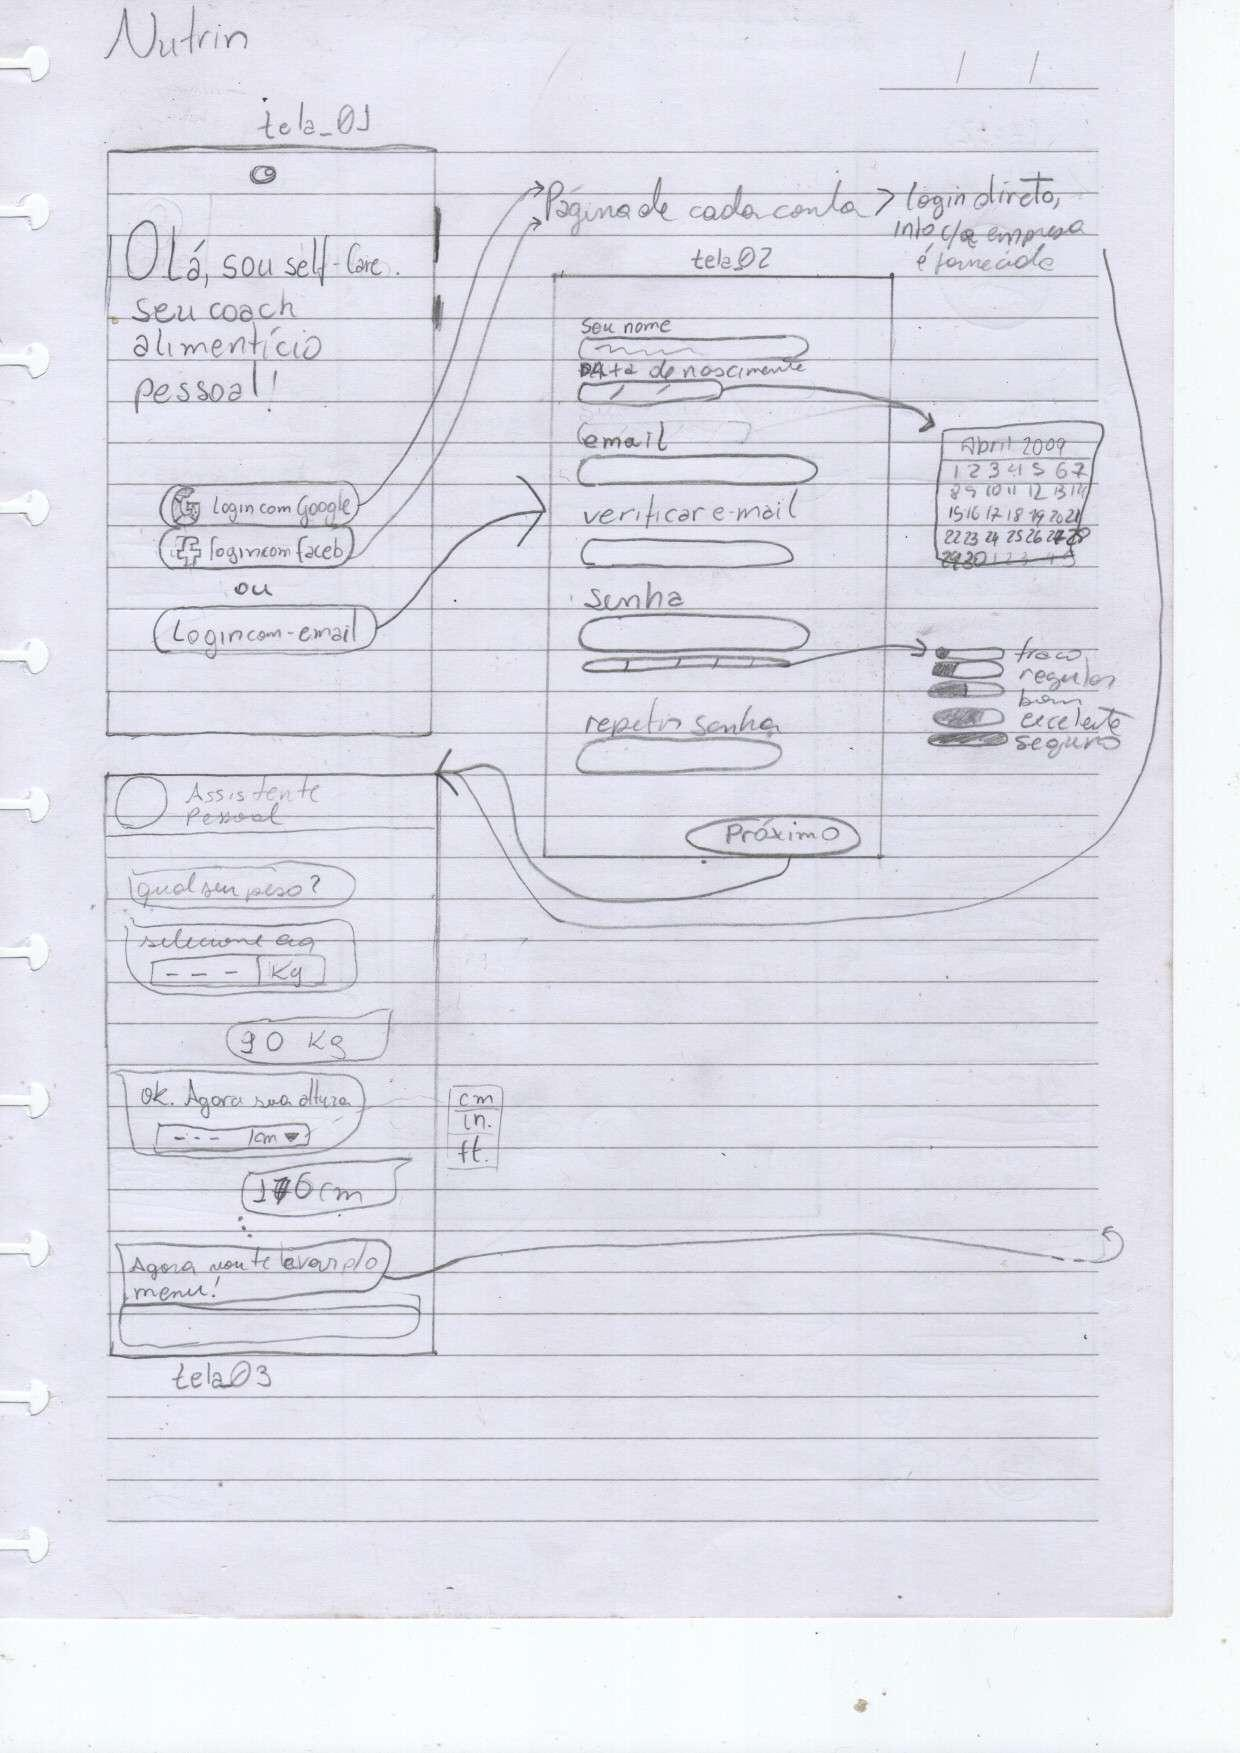 Nutrin
/ /
tela_01
Olá, sou self-Care.
seu coach
alimentício
pessoal!
G Login com Google
f login com faceb
ou
Login com-email
Página de cada conta > login direto,
info c/a empresa
é fornecida
tela_02
seu nome
DAta de nascimento
/ /
email
verificar e-mail
senha
repetir senha
Próximo
Abril 2009
1 2 3 4 5 6 7
8 9 10 11 12 13 14
15 16 17 18 19 20 21
22 23 24 25 26 27 28
29 30 1 2 3 4 5
fraco
regular
bom
excelente
seguro
Assistente
Pessoal
qual seu peso?
selecione aq
--- Kg
90 Kg
OK. Agora sua altura
--- cm
cm
in.
ft.
176cm
Agora vou te levar p/o
menu!
tela_03